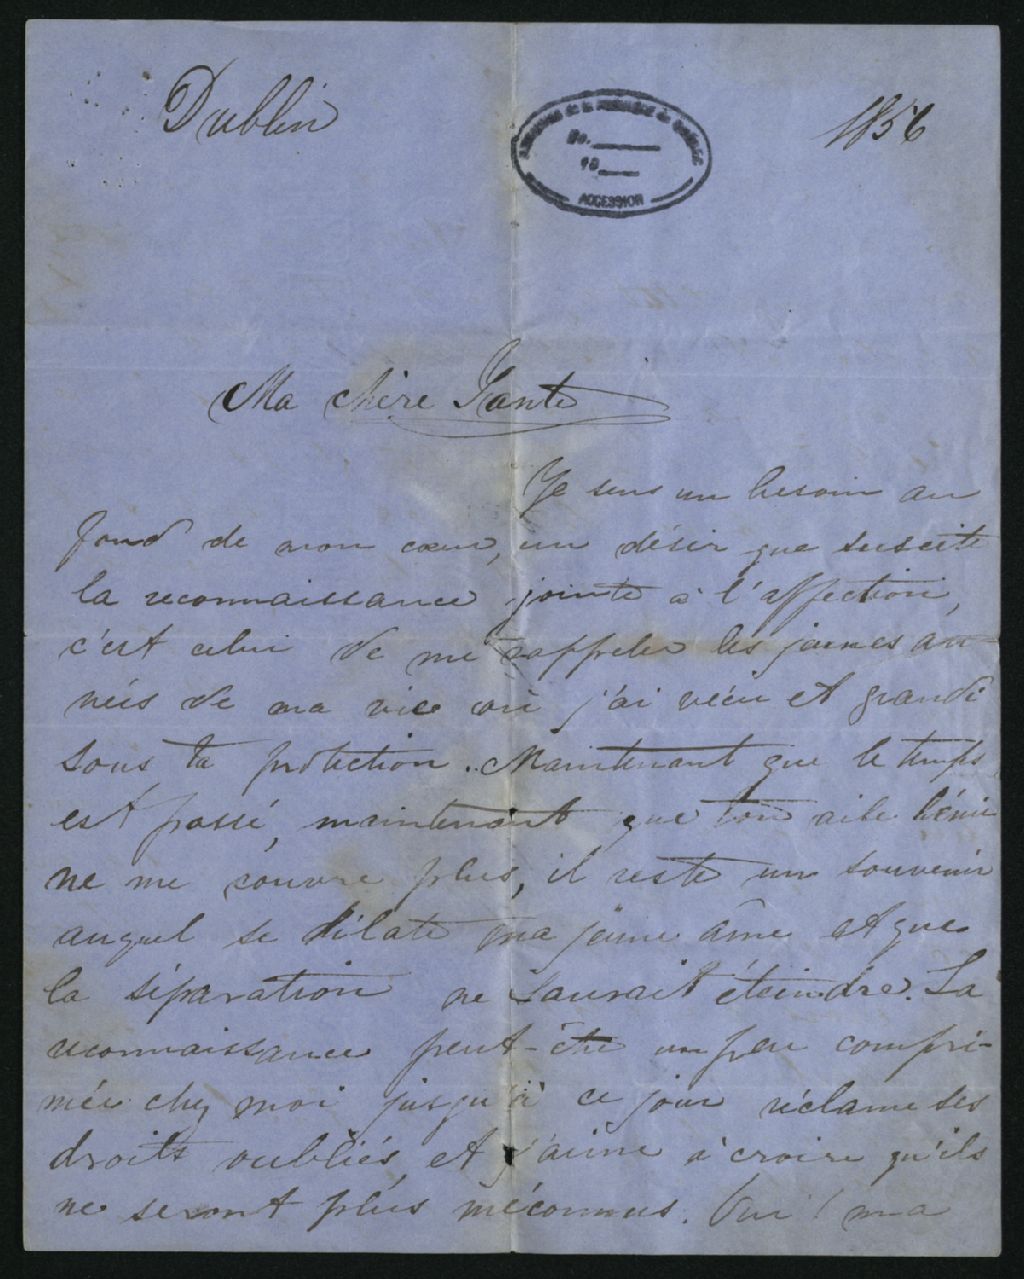 Dublin
1856
Archives de la Province de Québec
No.
19
ACCESSION
Ma chère Tante
Je sens un besoin au
fond de mon cœur, un désir que suscite
la reconnaissance jointe à l'affection,
c'est celui de me rappeler les jeunes an
nées de ma vie où j'ai vécu et grandi
sous ta protection. Maintenant que le temps
est passé, maintenant que ton aile bénie
ne me couvre plus, il reste un souvenir
auquel se dilate ma jeune âme et que
la séparation ne saurait éteindre. La
reconnaissance peut-être un peu compri-
mée chez moi jusqu'à ce jour réclame ses
droits oubliés et j'aime à croire qu'ils
ne seront plus méconnus. Oui! ma